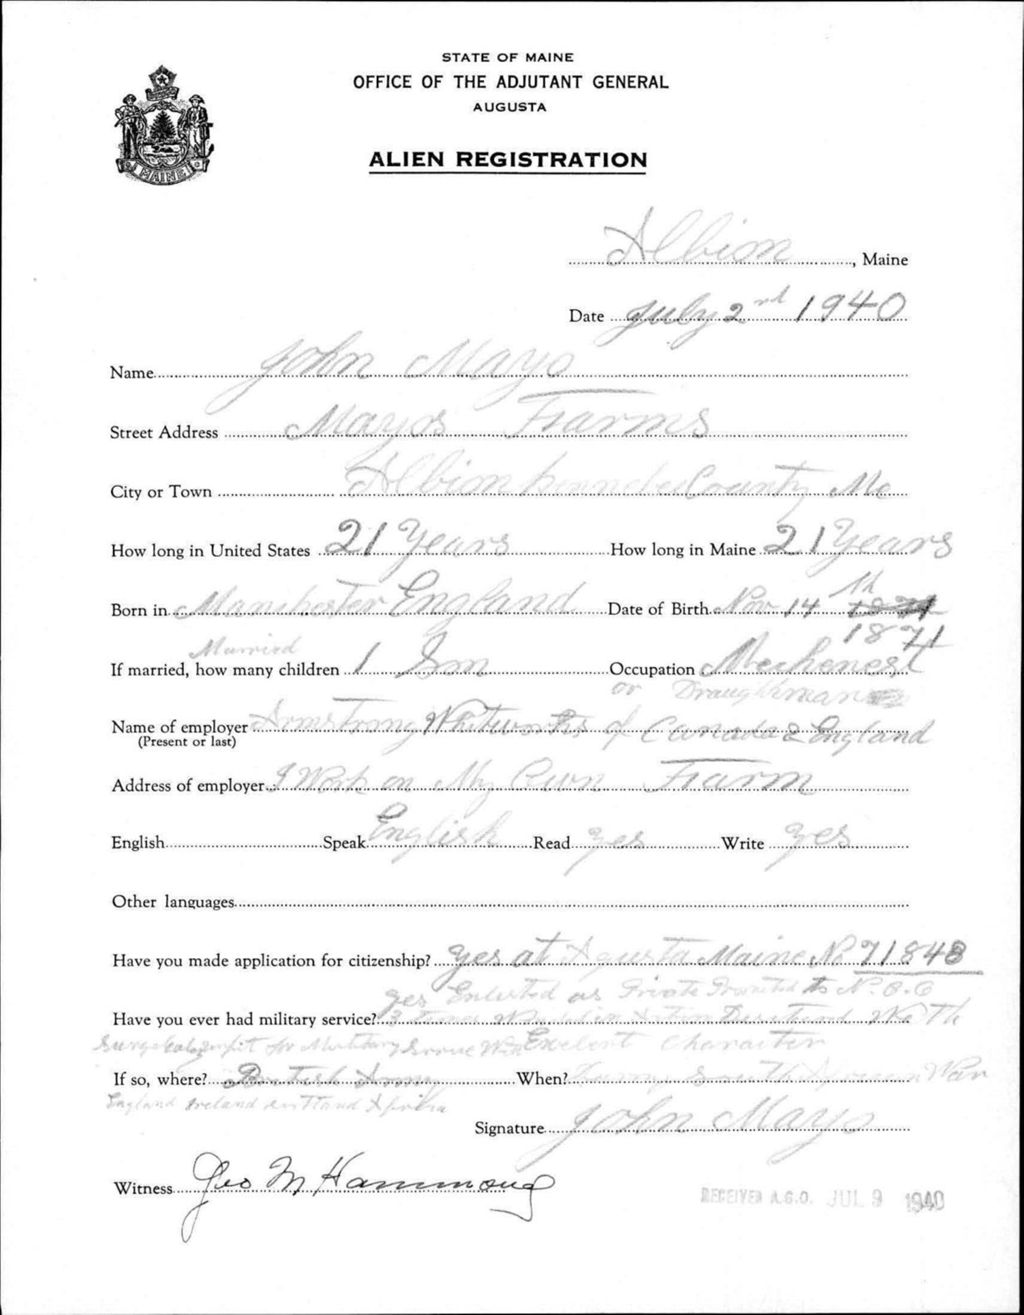 STATE OF MAINE
OFFICE OF THE ADJUTANT GENERAL
AUGUSTA
ALIEN REGISTRATION
MAINE
Albion, Maine
Date July 2nd 1940
Name John Mayo
Street Address Mayos Farms
City or Town Albion County Me
How long in United States 21 Years How long in Maine 21 Years
Born in Manchester England Date of Birth Nov 14th 1871
1871
Married
If married, how many children 1 Son Occupation Mechenest
or Draughtman
Name of employer Armstrong Whitworths of Canada & England
(Present or last)
Address of employer I Work on My Own Farm
English Speak English Read yes Write yes
Other languages
Have you made application for citizenship? yes at Agusta Maine No 71848
yes Enlisted as Private Promoted to N.C.O
Have you ever had military service? 3 times Wounded in Action With
for Military Service With Excelent Character
If so, where? British Army When? South African War
England Ireland Scotland Africa
Signature John Mayo
Witness Geo M Hammond
RECEIVED A.G.O. JUL 9 1940